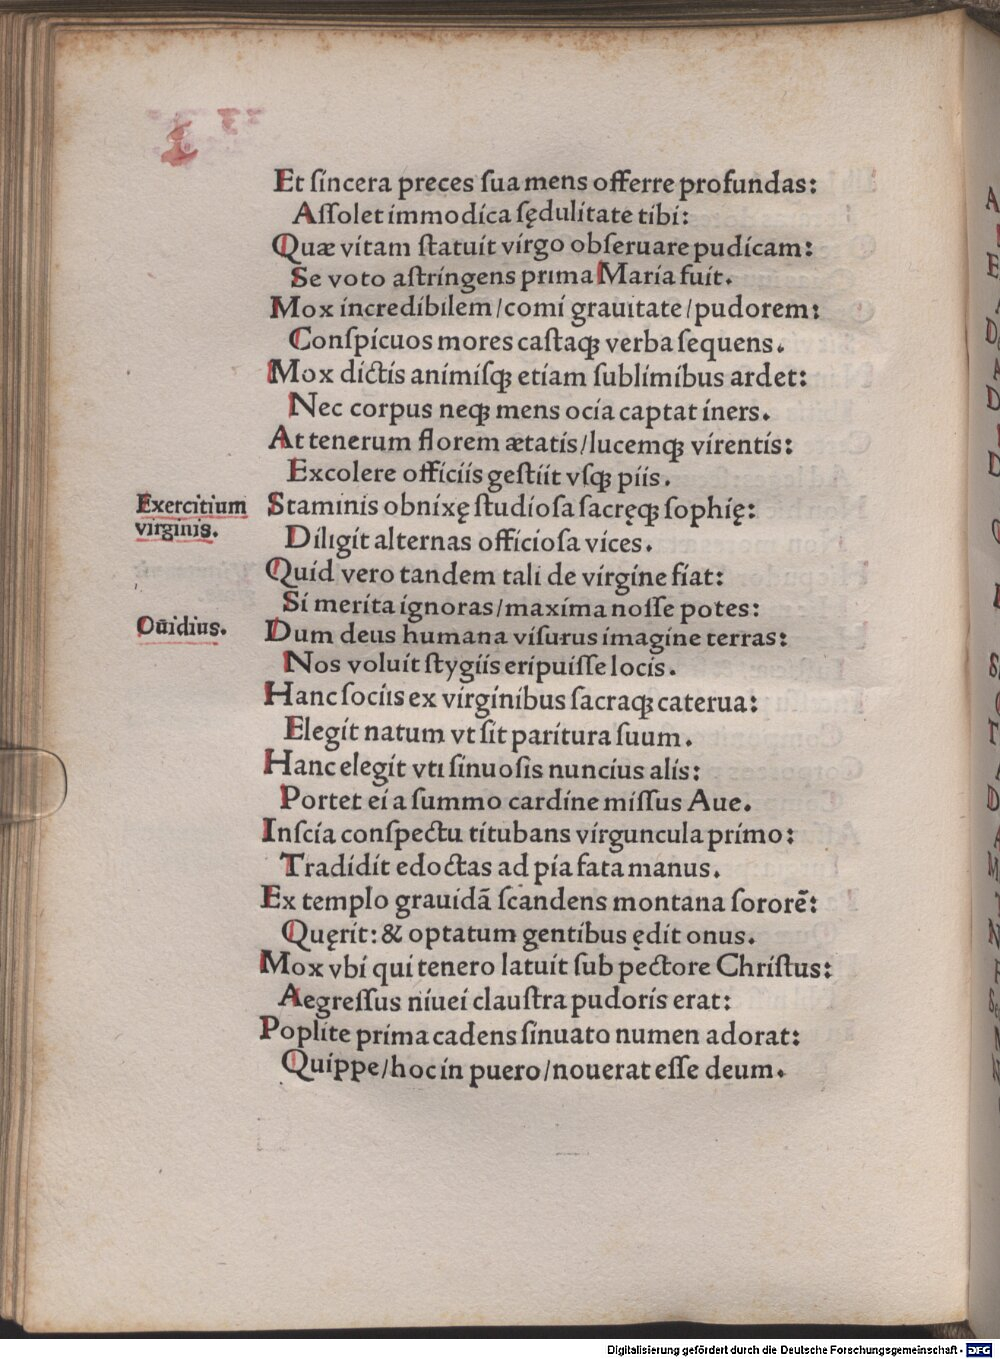 Et ſincera preces ſua mens offerre profundas:
Aſſolet immodica ſędulitate tibi:
Quæ vitam ſtatuit virgo obſeruare pudicam:
Se voto aſtringens prima Maria fuit.
Mox incredibilem/comi grauitate/pudorem:
Conſpicuos mores caſtaqꝫ verba ſequens.
Mox dictis animiſqꝫ etiam ſublimibus ardet:
Nec corpus neqꝫ mens ocia captat iners.
At tenerum florem ætatis/lucemqꝫ virentis:
Excolere officiis geſtiit vſqꝫ piis.
Exercitium
virginis.
Staminis obnixę ſtudioſa ſacręqꝫ ſophię:
Diligit alternas officioſa vices.
Quid vero tandem tali de virgine fiat:
Si merita ignoras/maxima noſſe potes:
Oūidius.
Dum deus humana viſurus imagine terras:
Nos voluit ſtygiis eripuiſſe locis.
Hanc ſociis ex virginibus ſacraqꝫ caterua:
Elegit natum vt ſit paritura ſuum.
Hanc elegit vti ſinuoſis nuncius alis:
Portet ei a ſummo cardine miſſus Aue.
Inſcia conſpectu titubans virguncula primo:
Tradidit edoctas ad pia fata manus.
Ex templo grauidā ſcandens montana ſororē:
Quęrit: & optatum gentibus ędit onus.
Mox vbi qui tenero latuit ſub pectore Chriſtus:
Aegreſſus niuei clauſtra pudoris erat:
Poplite prima cadens ſinuato numen adorat:
Quippe/hoc in puero/nouerat eſſe deum.
Digitalisierung gefördert durch die Deutsche Forschungsgemeinschaft - DFG